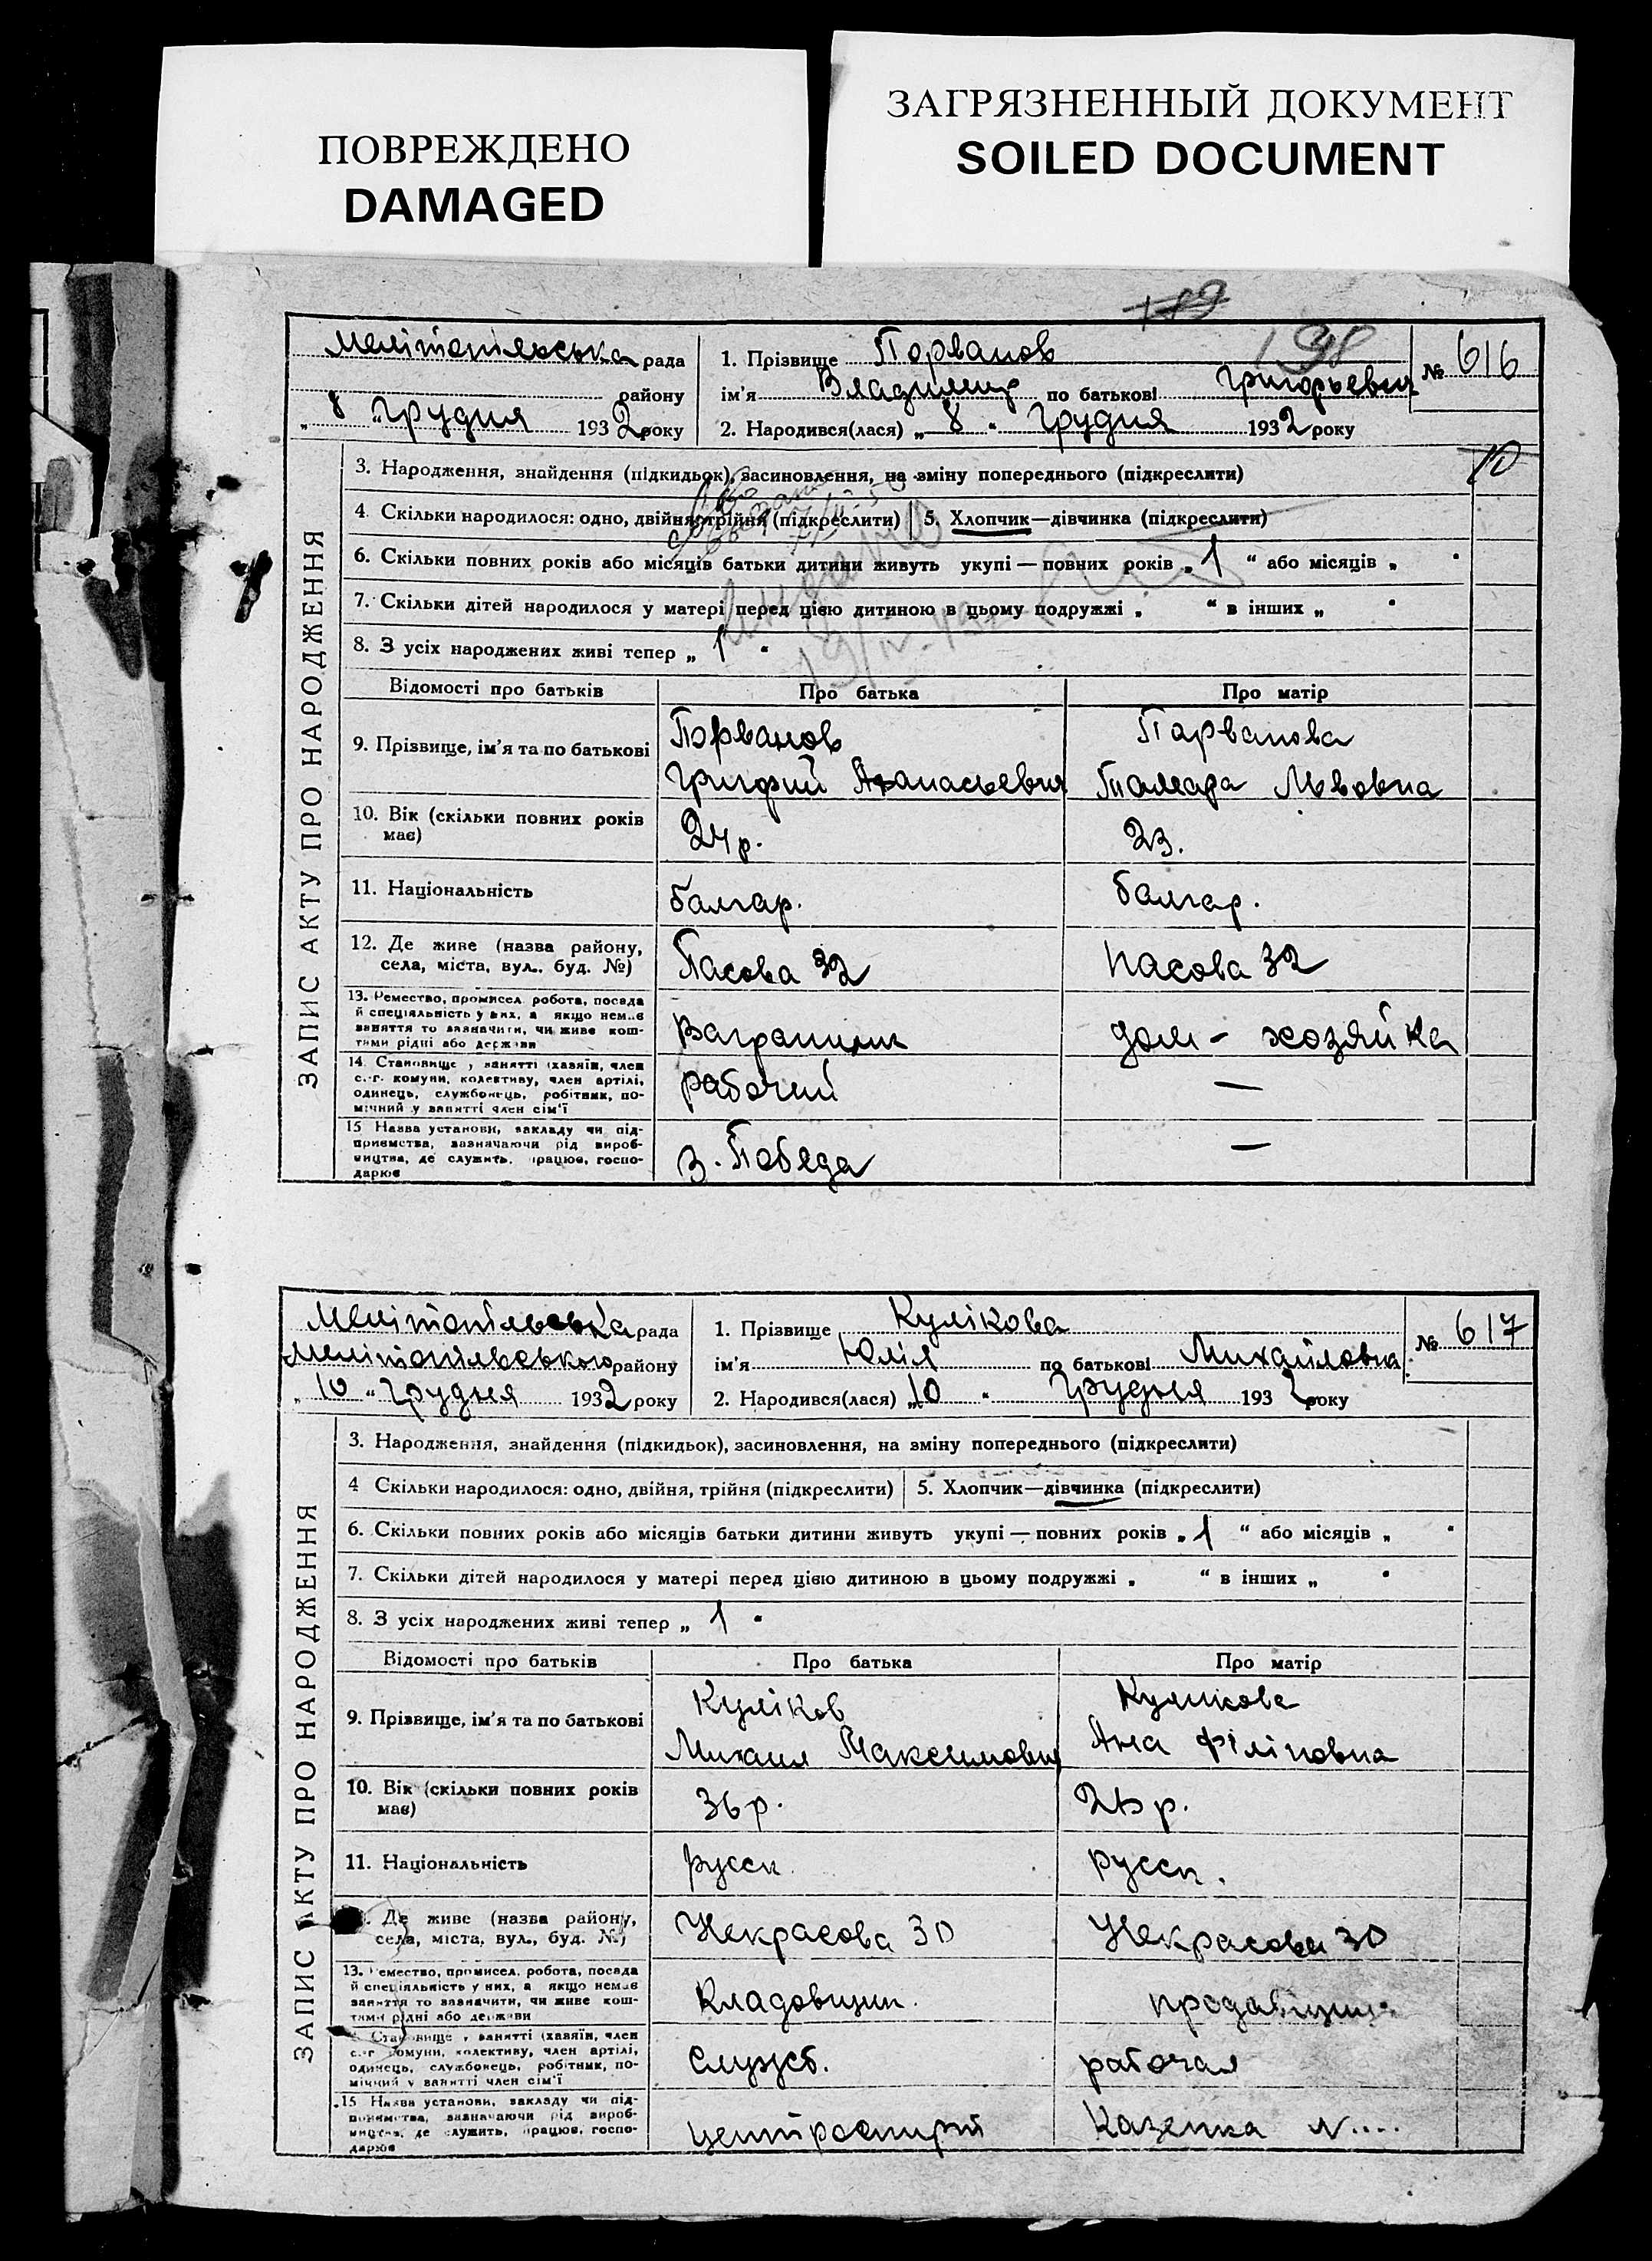 ПОВРЕЖДЕНО
DAMAGED
ЗАГРЯЗНЕННЫЙ ДОКУМЕНТ
SOILED DOCUMENT
189
198
Мелітопільська рада
району
„ 8 " грудня 1932 року
1. Прізвище Порванов
ім'я Владимир по батькові Григорьевич
2. Народився(лася) „ 8 " Грудня 1932 року
№ 616
10
ЗАПИС АКТУ ПРО НАРОДЖЕННЯ
3. Народження, знайдення (підкидьок), засиновлення, на зміну попереднього (підкреслити)
4. Скільки народилося: одно, двійня, трійня (підкреслити) 5. Хлопчик—дівчинка (підкреслити)
6. Скільки повних років або місяців батьки дитини живуть укупі — повних років „ 1 " або місяців „ "
7. Скільки дітей народилося у матері перед цією дитиною в цьому подружжі „ " в інших „ "
8. З усіх народжених живі тепер „ 1 "
Відомості про батьків Про батька Про матір
9. Прізвище, ім'я та по батькові
Порванов
Григорий Афанасьевич
Парванова
Тамара Львовна
10. Вік (скільки повних років має)
24 р.
23.
11. Національність
болгар.
болгар.
12. Де живе (назва району, села, міста, вул., буд. №)
Пасова 32
Пасова 32
13. Ремество, промисел, робота, посада
й спеціяльність у них, а якщо немає
заняття то зазначити, чи живе кош-
тами рідні або держави
Вагранщик
дом - хозяйка
14. Становище у занятті (хазяїн, член
с.-г. комуни, колективу, член артілі,
одинець, службовець, робітник, по-
мічний у занятті член сім'ї
рабочий
—
15 Назва установи, закладу чи під-
приємства, зазначаючи рід вироб-
ництва, де служить, працює, госпо-
дарює
з. Победа
—
Мелітопільська рада
Мелітопільського району
„ 10 " грудня 1932 року
1. Прізвище Кулікова
ім'я Юлія по батькові Михайловна
2. Народився(лася) „ 10 " Грудня 1932 року
№ 617
ЗАПИС АКТУ ПРО НАРОДЖЕННЯ
3. Народження, знайдення (підкидьок), засиновлення, на зміну попереднього (підкреслити)
4 Скільки народилося: одно, двійня, трійня (підкреслити) 5. Хлопчик—дівчинка (підкреслити)
6. Скільки повних років або місяців батьки дитини живуть укупі — повних років „ 1 " або місяців „ "
7. Скільки дітей народилося у матері перед цією дитиною в цьому подружжі „ " в інших „ "
8. З усіх народжених живі тепер „ 1 "
Відомості про батьків Про батька Про матір
9. Прізвище, ім'я та по батькові
Куліков
Михаил Максимович
Куликова
Анна Філіповна
10. Вік (скільки повних років має)
36 р.
р.
11. Національність
русск
русск.
Де живе (назва району, села, міста, вул., буд. №)
Некрасова 30
Некрасова 30
13. Ремество, промисел, робота, посада
й спеціяльність у них, а якщо немає
заняття то зазначити, чи живе кош-
тами рідні або держави
Кладовщик.
продавщица
Становище у занятті (хазяїн, член
с.-г. комуни, колективу, член артілі,
одинець, службовець, робітник, по-
мічний у занятті член сім'ї
Служб.
рабочая
15 Назва установи, закладу чи під-
приємства, зазначаючи рід вироб-
ництва, де служить, працює, госпо-
дарює
центроспирт
Казенка N....